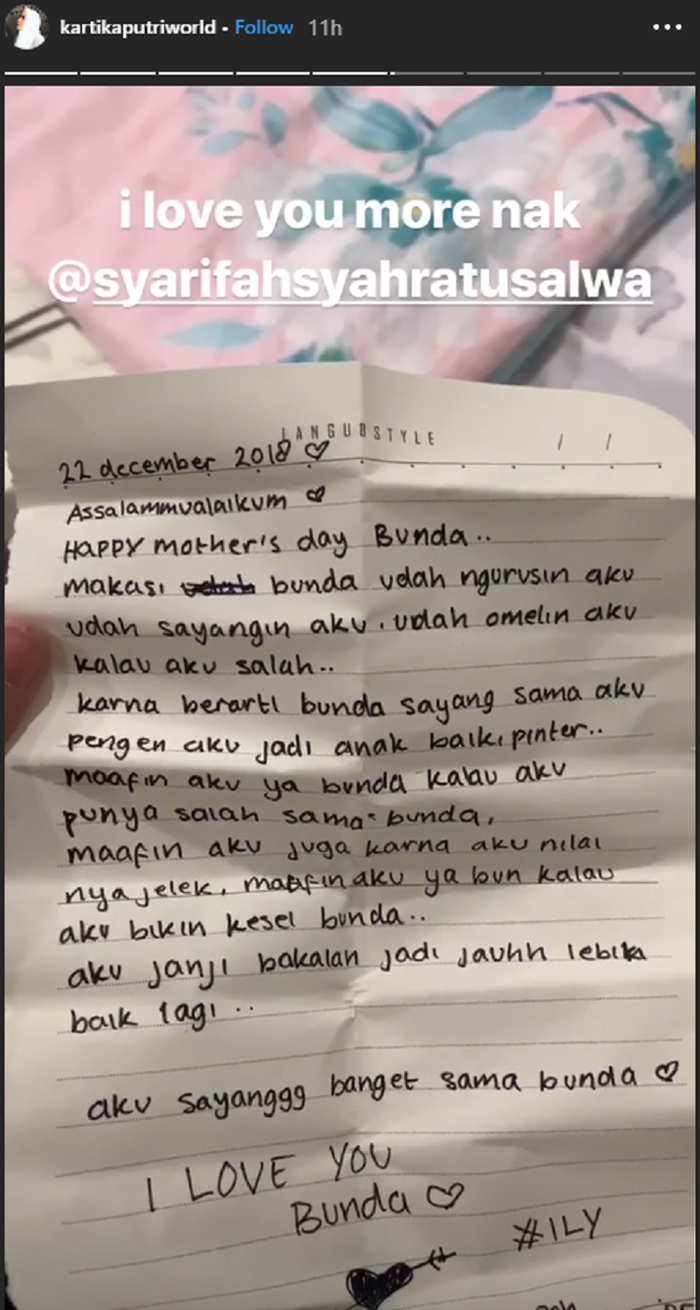 kartikaputriworld • Follow 11h
i love you more nak
@syarifahsyahratusalwa
LANGUBSTYLE / /
22 december 2018 ♡
Assalammualaikum ♡
Happy mother's day Bunda..
makasi bunda udah ngurusin aku
udah sayangin aku. udah omelin aku
kalau aku salah..
karna berarti bunda sayang sama aku
pengen aku jadi anak baik, pinter..
maafin aku ya bunda kalau aku
punya salah sama bunda,
maafin aku juga karna aku nilai
nya jelek, maafin aku ya bun kalau
aku bikin kesel bunda..
aku janji bakalan jadi jauhh lebih
baik lagi ..
aku sayanggg banget sama bunda ♡
I LOVE YOU
Bunda ♡
#ILY